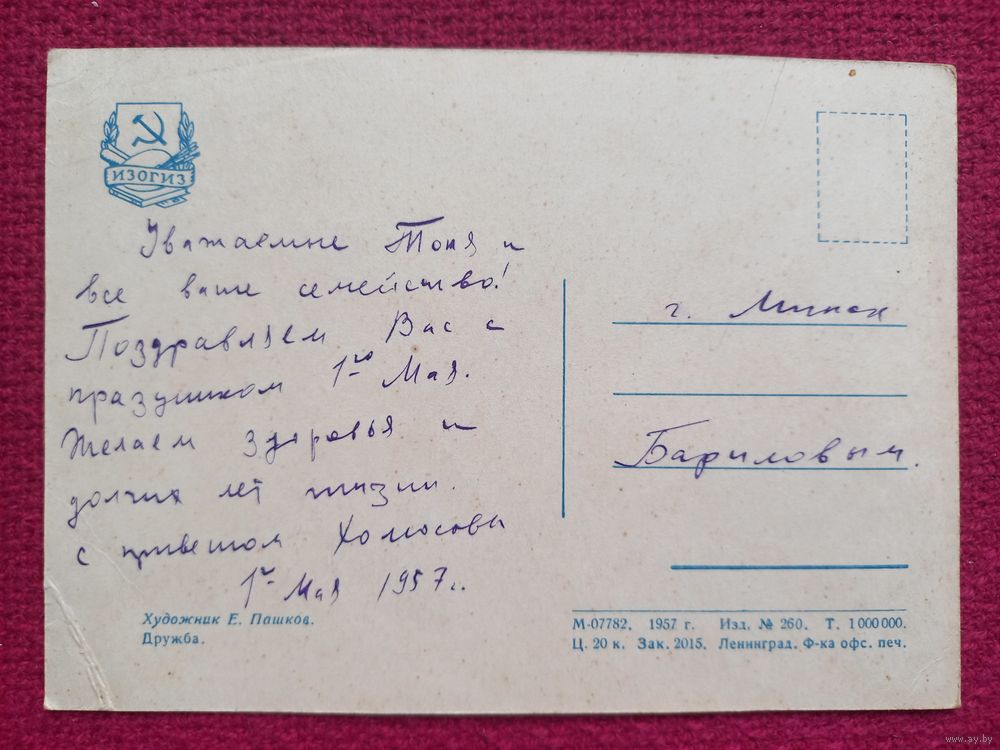 ИЗОГИЗ
Уважаемые Тоня и
все ваше семейство!
Поздравляем Вас с
праздником 1-го Мая.
Желаем здоровья и
долгих лет жизни.
с приветом
1е Мая 1957 г.
г. Минск
Бариловым.
Художник Е. Пашков.
Дружба.
М-07782. 1957 г. Изд. № 260. Т. 1 000 000.
Ц. 20 к. Зак. 2015. Ленинград. Ф-ка офс. печ.
www.ay.by